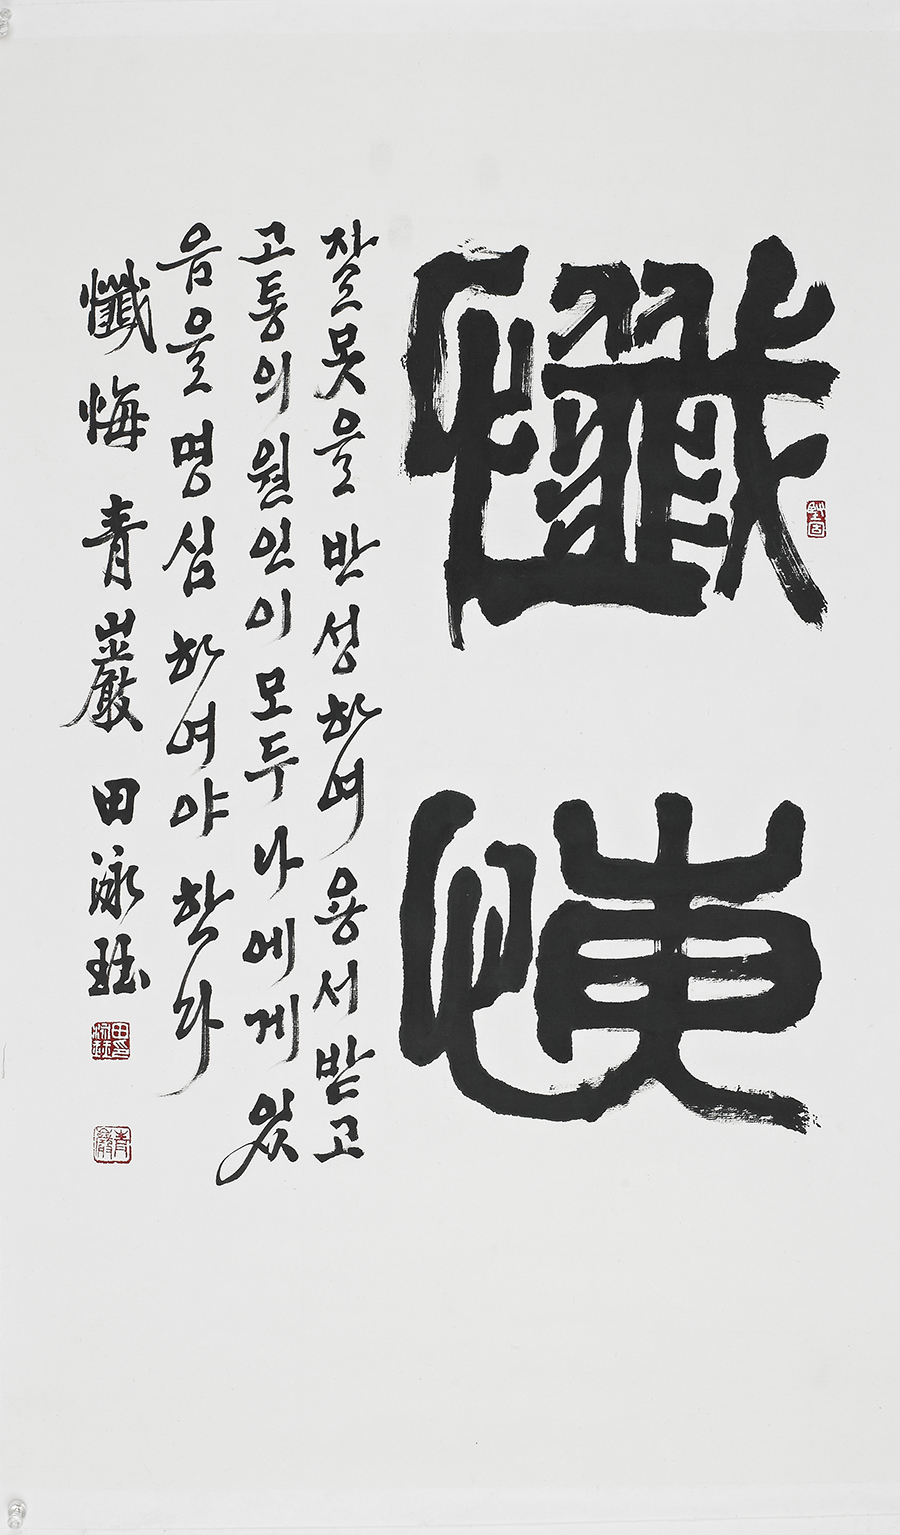 懺悔
잘못을 반성하여 용서받고
고통의 원인이 모두 나에게 있
음을 명심하여야 한다
懺悔 青巖 田泳珏